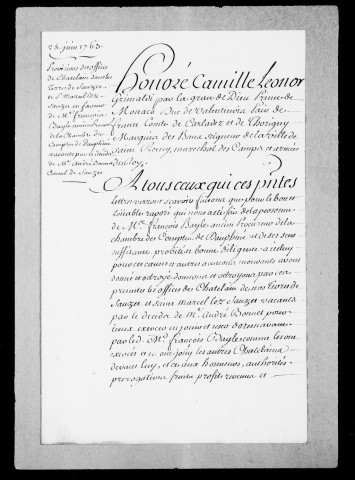 25. juin 1763.
Provisions des offices
de Chatelain dans les
Terres de Sauzet
et St Marcel lez
Sauzet en faveur
de Me François
Bayle ancien Procureur
de la Chambre des
Comptes de Dauphiné
vacants par le decès
de Mr André Bonnet
Sauzet
Honoré Camille Leonor
Grimaldi par la grace de Dieu Prince de
Monaco Duc de Valentinois Pair de
france Comte de Carladez et de Thorigny
Marquis des Baux Seigneur de la Ville de
Saint Remy, marechal des Camps et armées
du Roy.
A tous ceux qui ces pntes
lettres verront scavoir faisons que pour le bon et
louable raport qui nous a eté fait de la personne
de Me François Bayle ancien Procureur de la
chambre des Comptes de Dauphiné et de ses sens
suffisance, probité et bonne diligence a iceluy
pour ces causes et autres a ce nous mouvants avons
donné et octroyé donnons et octroyons par ces
presentes les offices de Chatelain de nos Terres de
Sauzet et Saint Marcel lez Sauzet vacants
par le decès de Mr André Bonnet pour
iceux exercer en jouir et user dorenavant
par led. Me françois Bayle comme les ont
exercés et en ont joüy les autres Chatelains
devant luy, et ce aux honneurs, authorités
prerogatives fruits profits revenus et